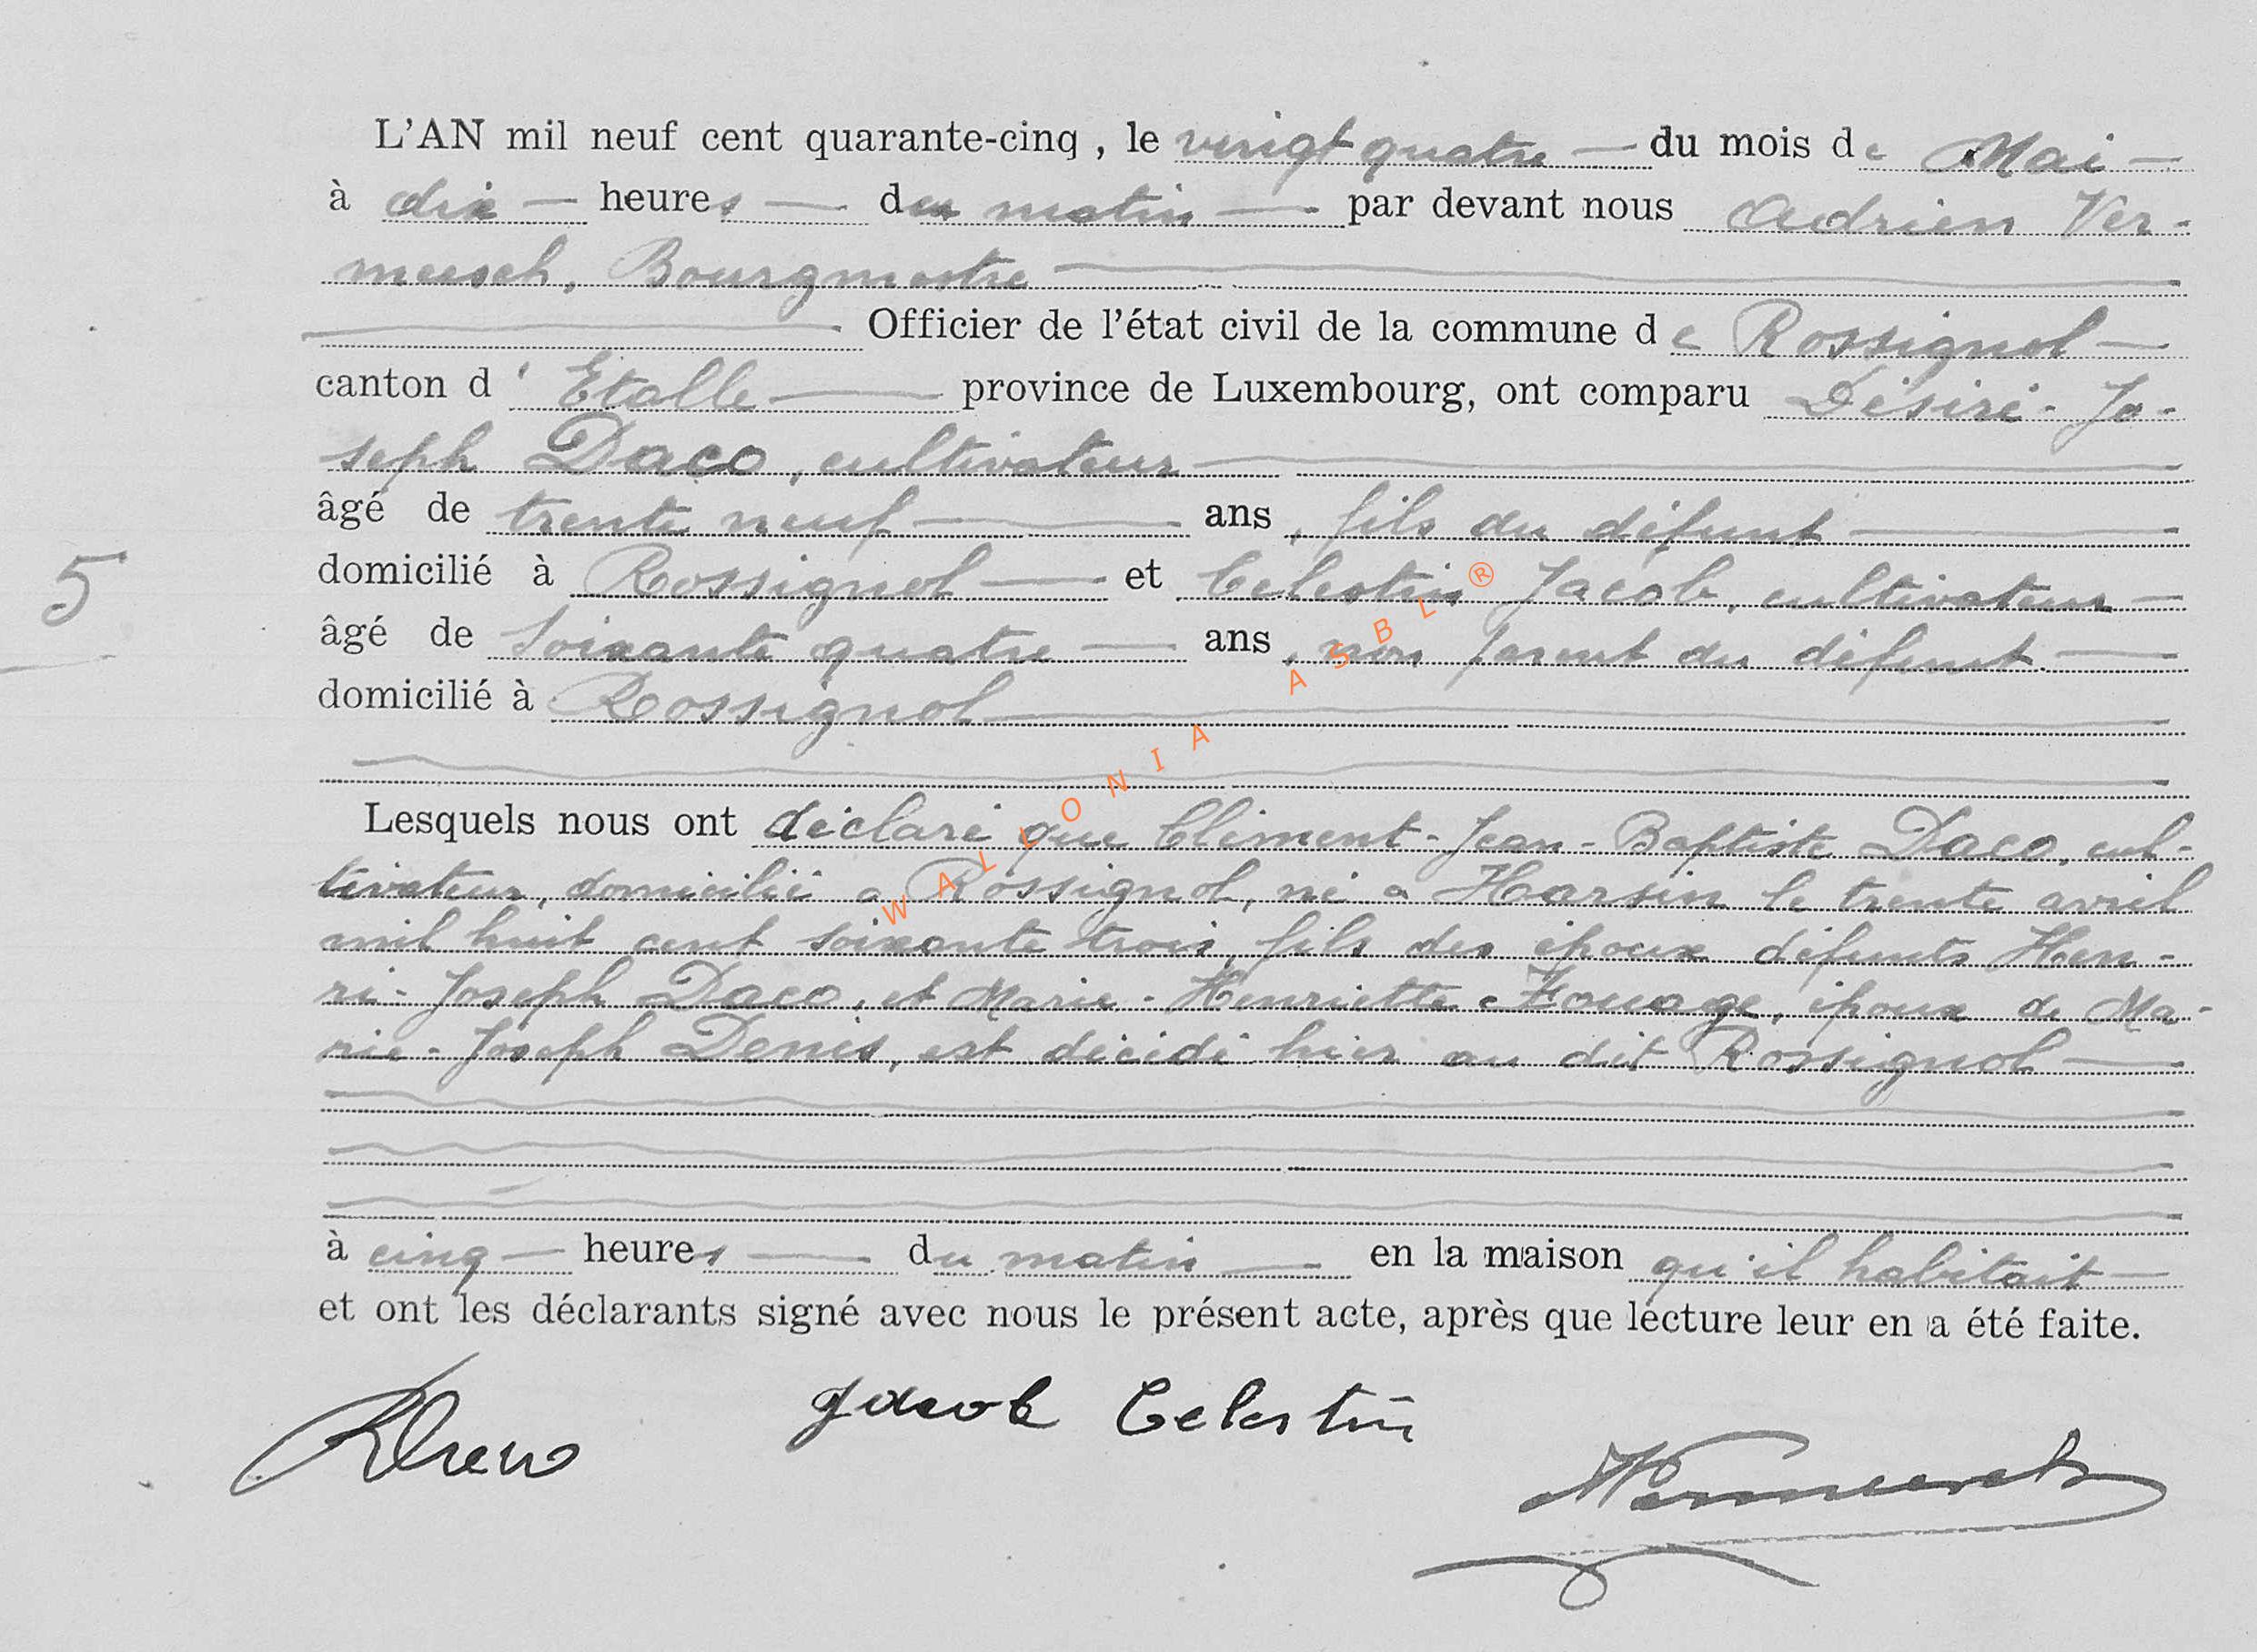 L'AN mil neuf cent quarante-cinq, le vingt quatre du mois de Mai
à dix heures du matin par devant nous Adrien Ver-
meesch, Bourgmestre
Officier de l'état civil de la commune de Rossignol
canton d'Etalle province de Luxembourg, ont comparu Désiré-Jo-
seph Daco, cultivateur
âgé de trente neuf ans, fils du défunt
domicilié à Rossignol et Celestin Jacob, cultivateur
âgé de soixante quatre ans, non parent du défunt
domicilié à Rossignol
Lesquels nous ont déclaré que Clément-Jean-Baptiste Daco, cul-
tivateur, domicilié a Rossignol, né a Harsin le trente avril
mil huit cent soixante trois, fils des époux défunts Hen-
ri-Joseph Daco, et Marie-Henriette Fouage, époux de Ma-
rie-Joseph Denis, est décédé hier au dit Rossignol
à cinq heures du matin en la maison qu'il habitait
et ont les déclarants signé avec nous le présent acte, après que lecture leur en a été faite.
5
Jacob Celestin
WALLONIA ASBL®